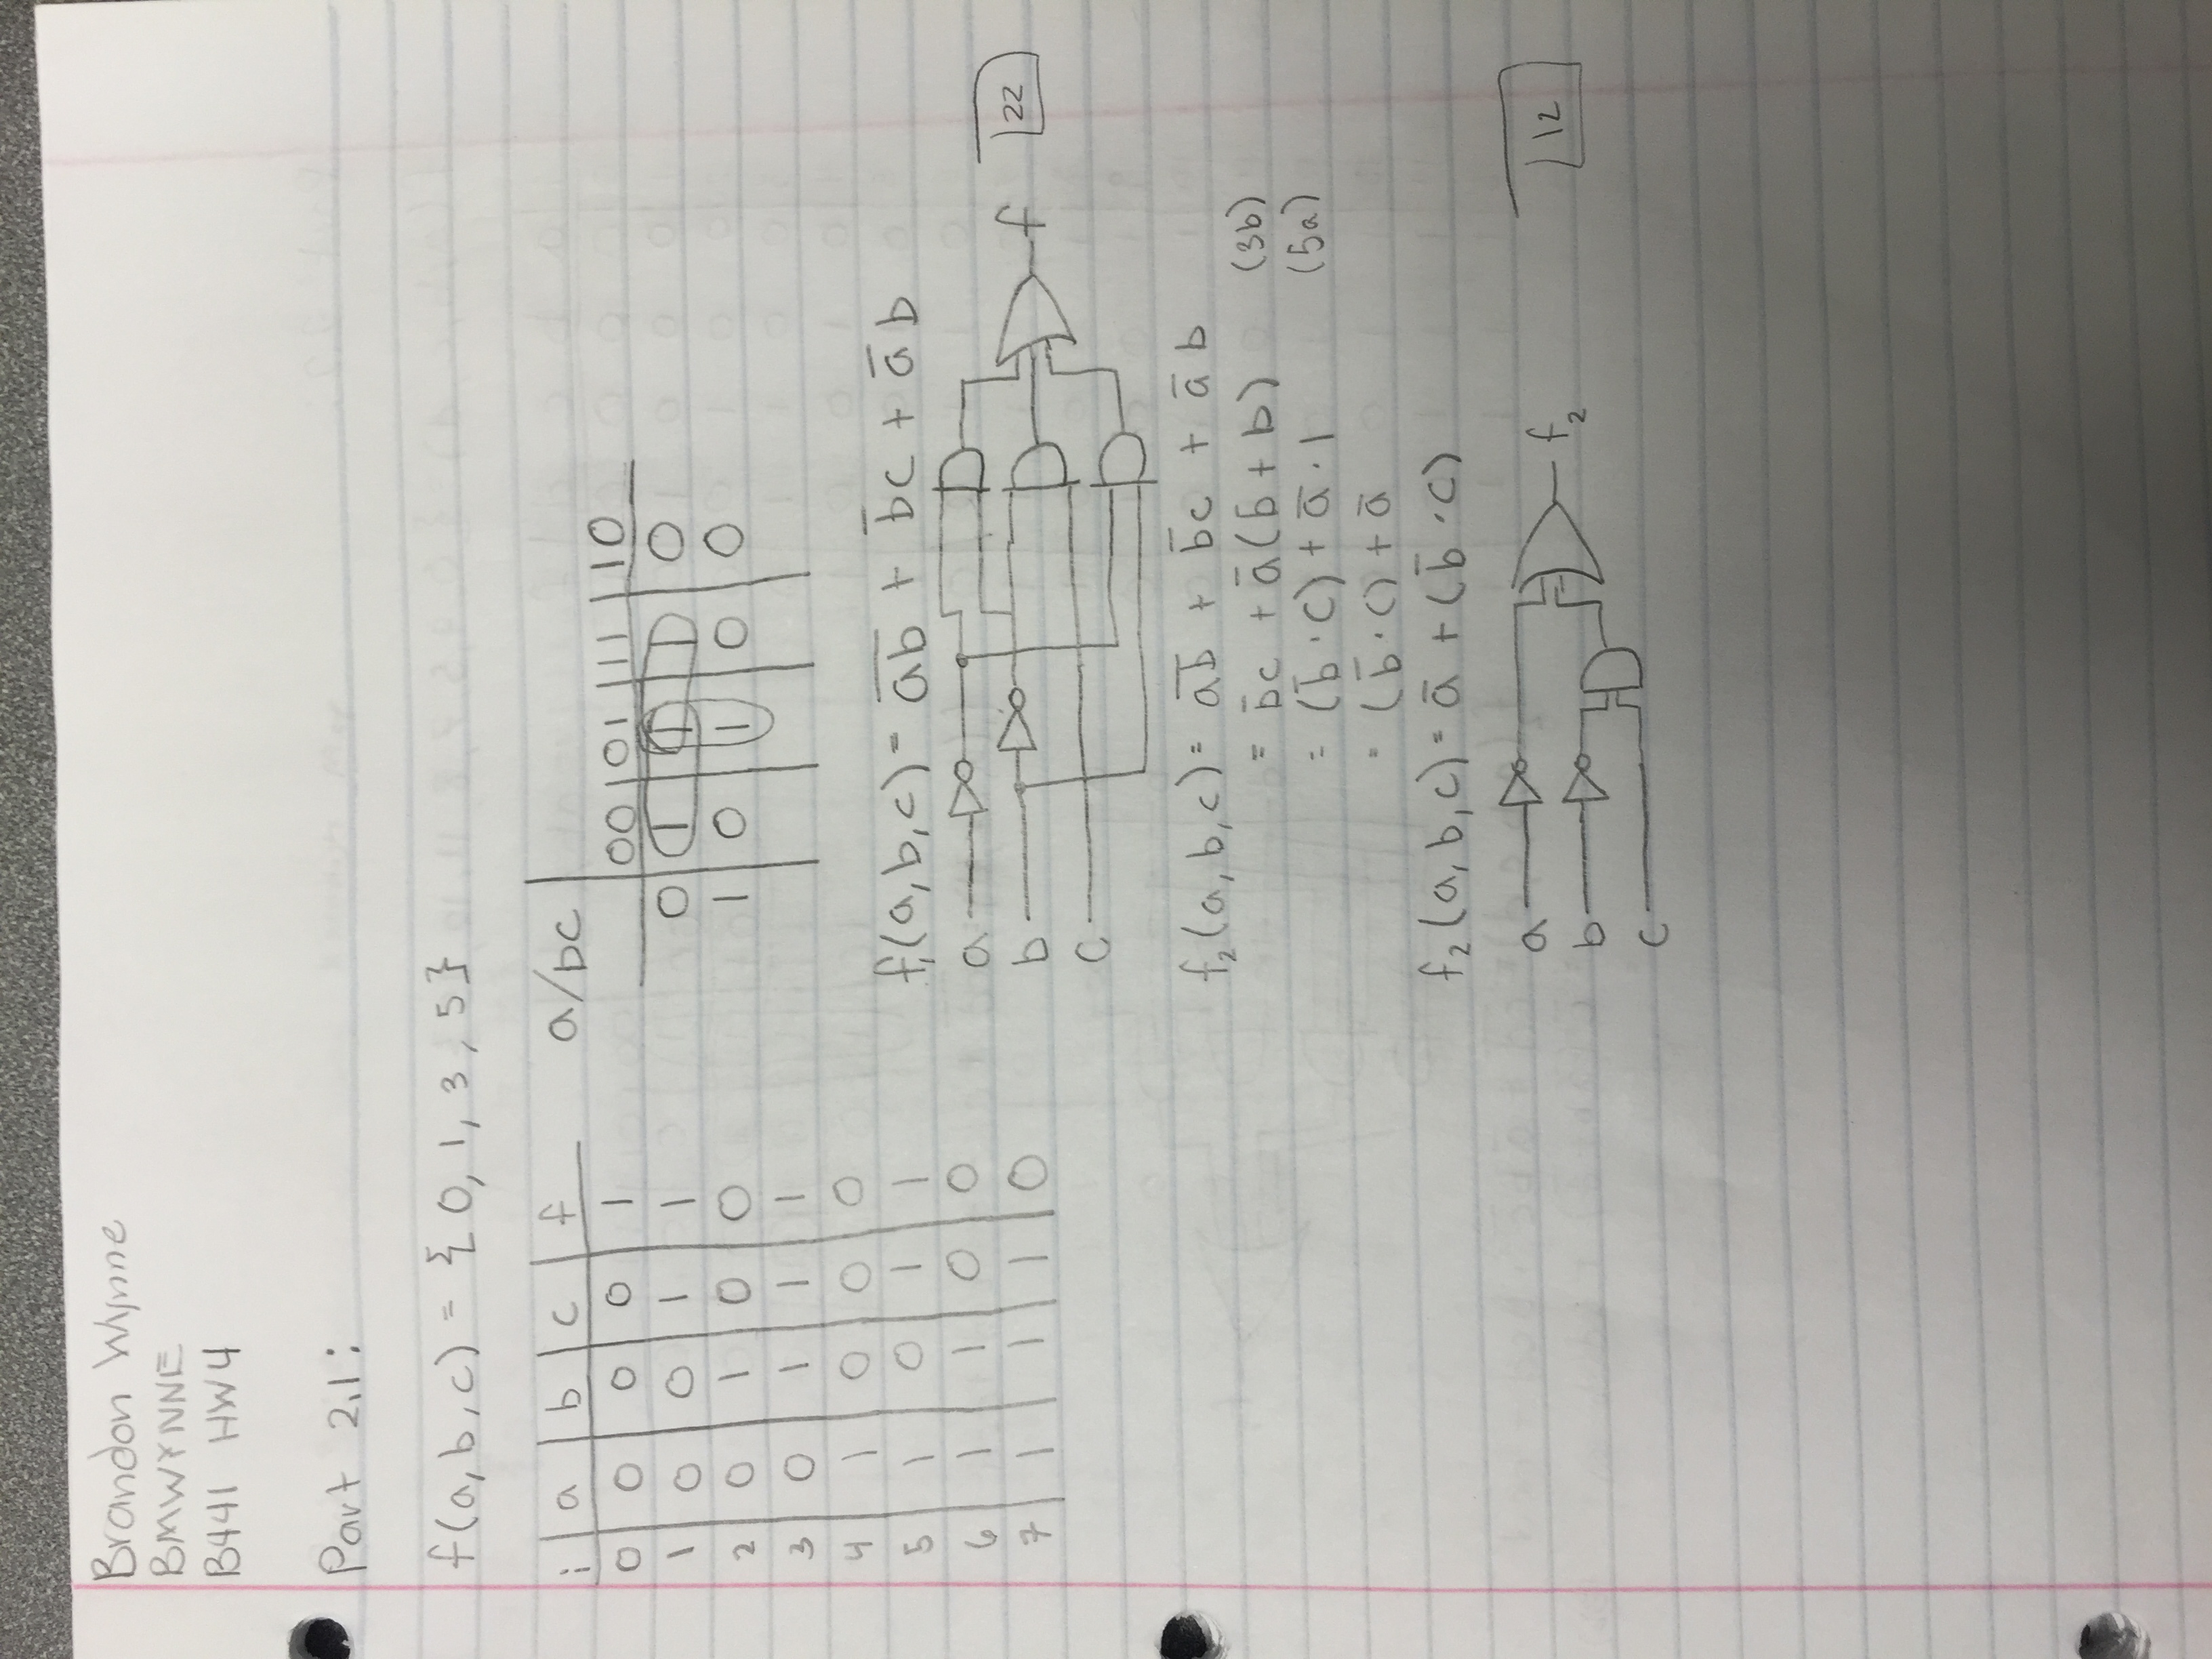 Brandon Wynne
BMWYNNE
B441 HW4
Part 2.1:
f(a,b,c) = {0, 1, 3, 5}
i a b c f
0 0 0 0 1
1 0 0 1 1
2 0 1 0 0
3 0 1 1 1
4 1 0 0 0
5 1 0 1 1
6 1 1 0 0
7 1 1 1 0
a/bc
00 01 11 10
0 1 1 1 0
1 0 1 0 0
f₁(a,b,c) = a̅b̅ + b̅c + a̅b
a
b
c
f
22
f₂(a,b,c) = a̅b̅ + b̅c + a̅b
= b̅c + a̅(b̅ + b) (3b)
= (b̅·c) + a̅·1 (5a)
= (b̅·c) + a̅
f₂(a,b,c) = a̅ + (b̅·c)
a
b
c
f₂
12